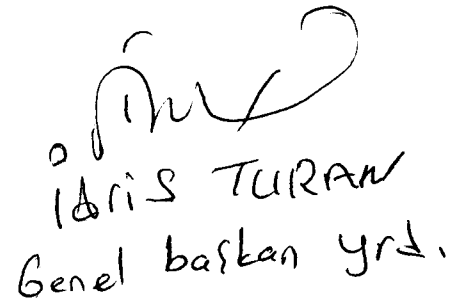 İdris TURAN
Genel başkan yrd.